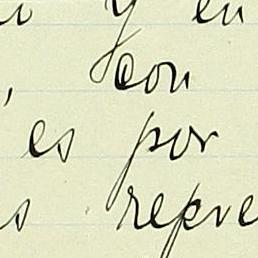 y en
, con
es por
s repre